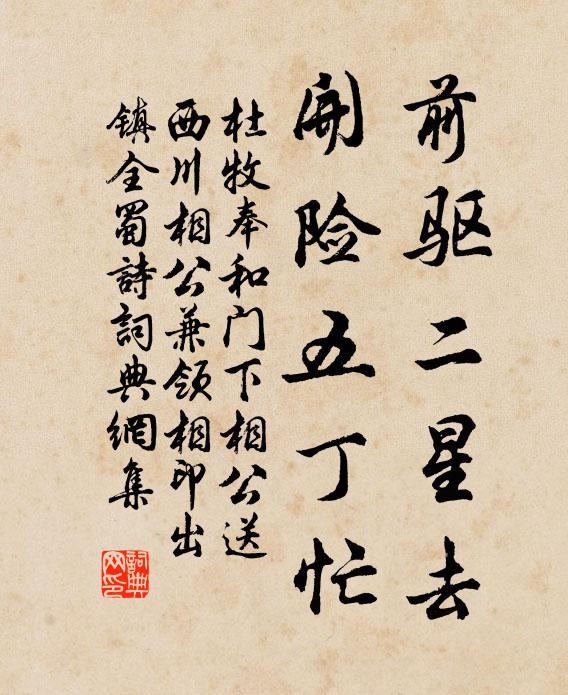 前驱二星去
開险五丁忙
杜牧奉和门下相公送
西川相公兼领相印出
镇全蜀詩詞典網集
詞典网印